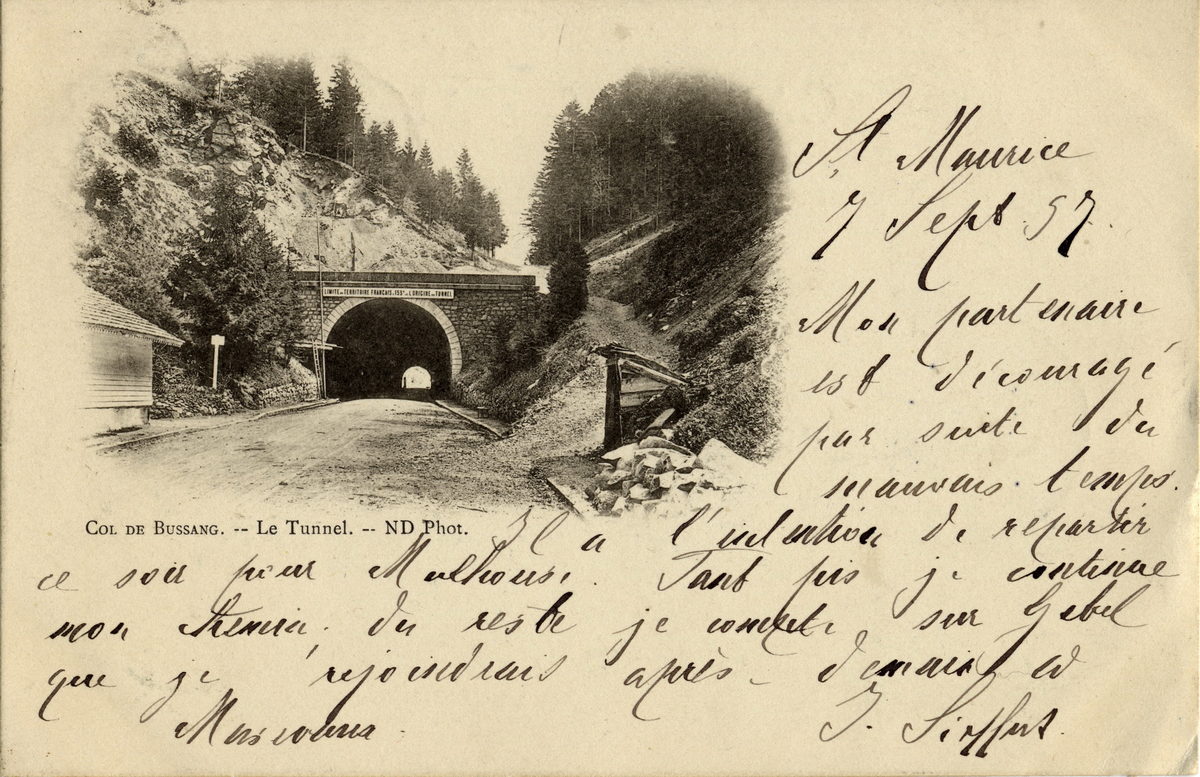 LIMITE DU TERRITOIRE FRANÇAIS A 155M DE L'ORIGINE DU TUNNEL
COL DE BUSSANG. -- Le Tunnel. -- ND Phot.
St Maurice
7 Sept. 97.
Mon partenaire
est découragé
par suite du
mauvais temps.
Il a l'intention de repartir
ce soir pour Mulhouse. Tant pis je continue
mon chemin. Du reste je compte sur Gebel
que je rejoindrais après-demain à
J. Sieffert.